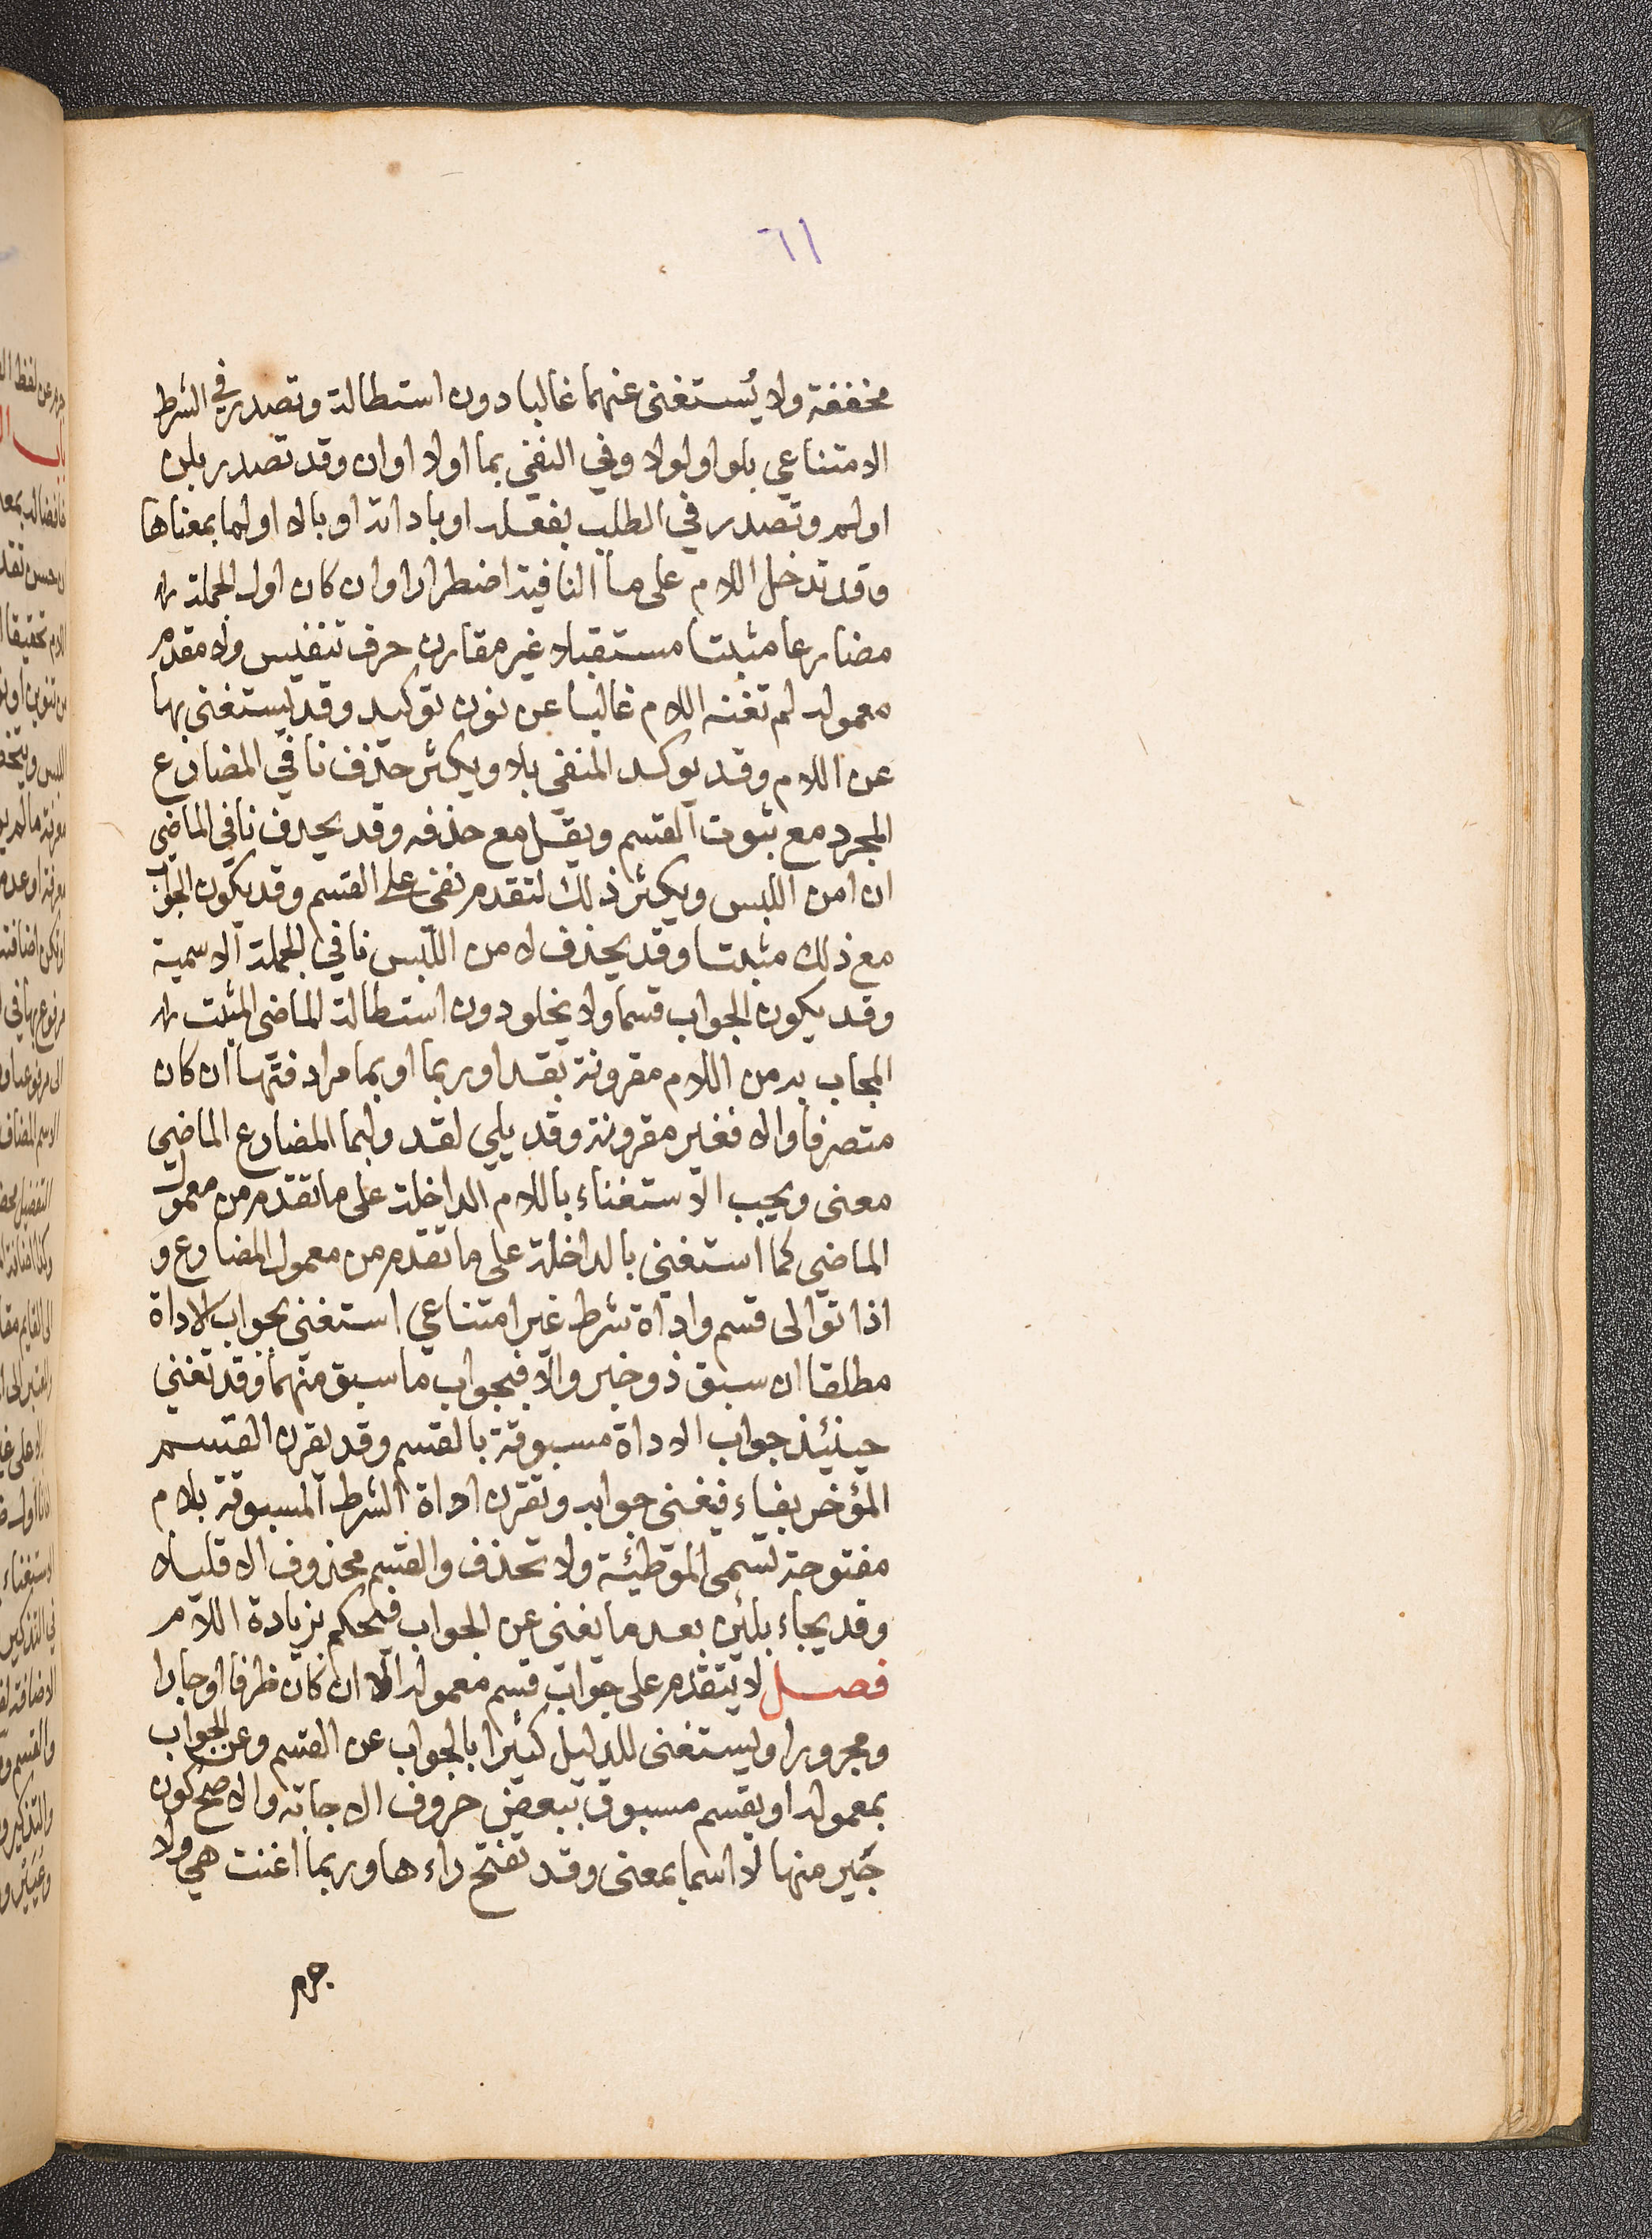 ٦١
مخففة ولا يُستغنى عنهما غالبا دون استطالة وتصدر في الشرط
الامتناعي بلو او لولا وفي النفي بما او لا او ان وقد تصدر بلن
او لم وتصدر في الطلب بفعله او باداته او بالا او لما بمعناها
وقد تدخل اللام على ما النافية اضطرارا وان كان اول الجملة
مضارعا مثبتا مستقبلا غير مقارن حرف تنفيس ولا مقدم
معموله لم تغنه اللام غالبا عن نون توكيد وقد يستغنى بها
عن اللام وقد يوكد المنفي بلا ويكثر حذف نافي المضارع
المجرد مع ثبوت القسم ويقل مع حذفه وقد يحذف نافي الماضي
ان امن اللبس ويكثر ذلك لتقدم نفي على القسم وقد يكون الجواب
مع ذلك مثبتا وقد يحذف لامن اللبس نافي الجملة الاسمية
وقد يكون الجواب قسما ولا يخلو دون استطالة الماضي المثبت
المجاب به من اللام مقرونة بقد او ربما او بما مرادفتها ان كان
متصرفا والا فغير مقرونة وقد يلي لقد ولبما المضارع الماضي
معنى ويجب الاستغناء باللام الداخلة على ما تقدم من معمول
الماضي كما استغنى بالداخلة على ما تقدم من معمول المضارع و
اذا توالى قسم واداة شرط غير امتناعي استغنى بجواب الاداة
مطلقا ان سبق ذو خبر والا فبجواب ما سبق منهما وقد تغني
حينئذ جواب الاداة مسبوقة بالقسم وقد يقرن القسم
المؤخر بفاء فيغني جوابه وتقرن اداة الشرط المسبوقة بلام
مفتوحة تسمى الموطئة ولا تحذف والقسم محذوف الا قليلا
وقد يجاء بلئن بعد ما يغني عن الجواب فيحكم بزيادة اللام
فصل لا يتقدم على جواب قسم معموله الا ان كان ظرفا او جارا
ومجرورا ويستغنى للدليل كثيرا بالجواب عن القسم وعن الجواب
بمعموله او بقسم مسبوق ببعض حروف الاجابه والاصح كون
جَير منها لا اسما بمعنى وقد تفتح راءها وربما اغنت هي ولا
جرم